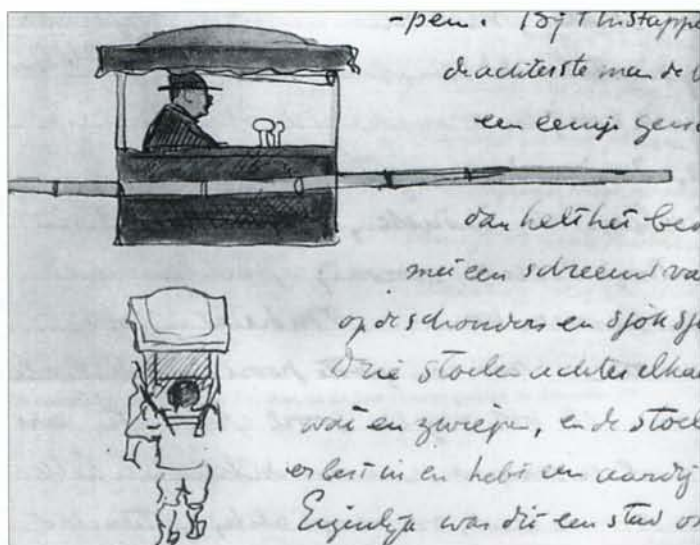 -pen. Bij 't instappe
de achterste man de
een eenige
dan helt het be
met een schreeuw va
op de schouders en sjok sj
Drie stoelen achter elka
en zwiepen, en de stoe
er best in en hebt een aardi
Eigenlijk was dit een stad